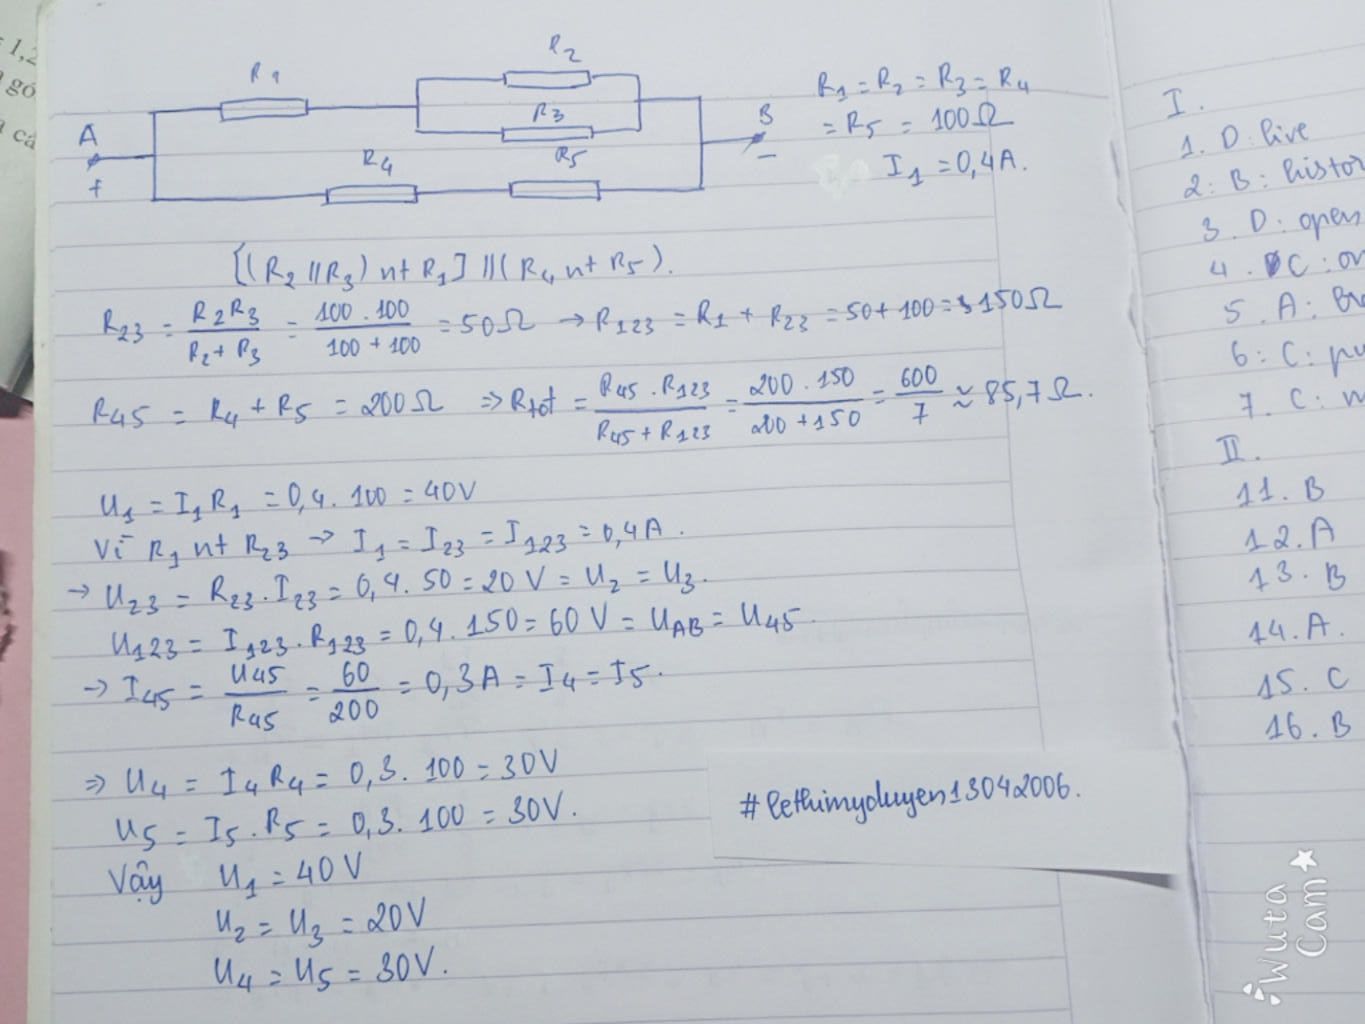 = 1,2
gó
cá
R2
R1
R3
A
B
R5
R4
+
−
R1 = R2 = R3 = R4
= R5 = 100Ω
I1 = 0,4A.
[(R2 // R3) nt R1] // (R4 nt R5).
R23 = R2R3 / R2 + R3 = 100 . 100 / 100 + 100 = 50Ω → R123 = R1 + R23 = 50 + 100 = 150Ω
R45 = R4 + R5 = 200Ω ⇒ Rtot = R45 . R123 / R45 + R123 = 200 . 150 / 200 + 150 = 600 / 7 ≈ 85,7Ω.
U1 = I1 R1 = 0,4 . 100 = 40V
Vì R1 nt R23 → I1 = I23 = I123 = 0,4A.
→ U23 = R23 . I23 = 0,4 . 50 = 20V = U2 = U3.
U123 = I123 . R123 = 0,4 . 150 = 60V = UAB = U45.
→ I45 = U45 / R45 = 60 / 200 = 0,3A = I4 = I5.
⇒ U4 = I4 R4 = 0,3 . 100 = 30V
U5 = I5 . R5 = 0,3 . 100 = 30V.
Vậy U1 = 40V
U2 = U3 = 20V
U4 = U5 = 30V.
#lethimyduyen13042006.
I.
1. D: live
2: B: histor
3. D: open
4. C: on
5. A: Bu
6: C: pu
7. C:
II.
11. B
12. A
13. B
14. A.
15. C
16. B
Wuta
Cam